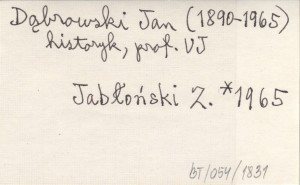 Dąbrowski Jan (1890-1965)
historyk, prof. UJ
Jabłoński Z. *1965
BT/054/1831